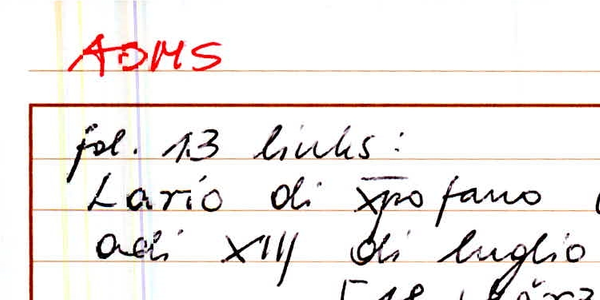 ADMS
fol. 13 links:
Lario di xpofano
adi XIIJ di luglio